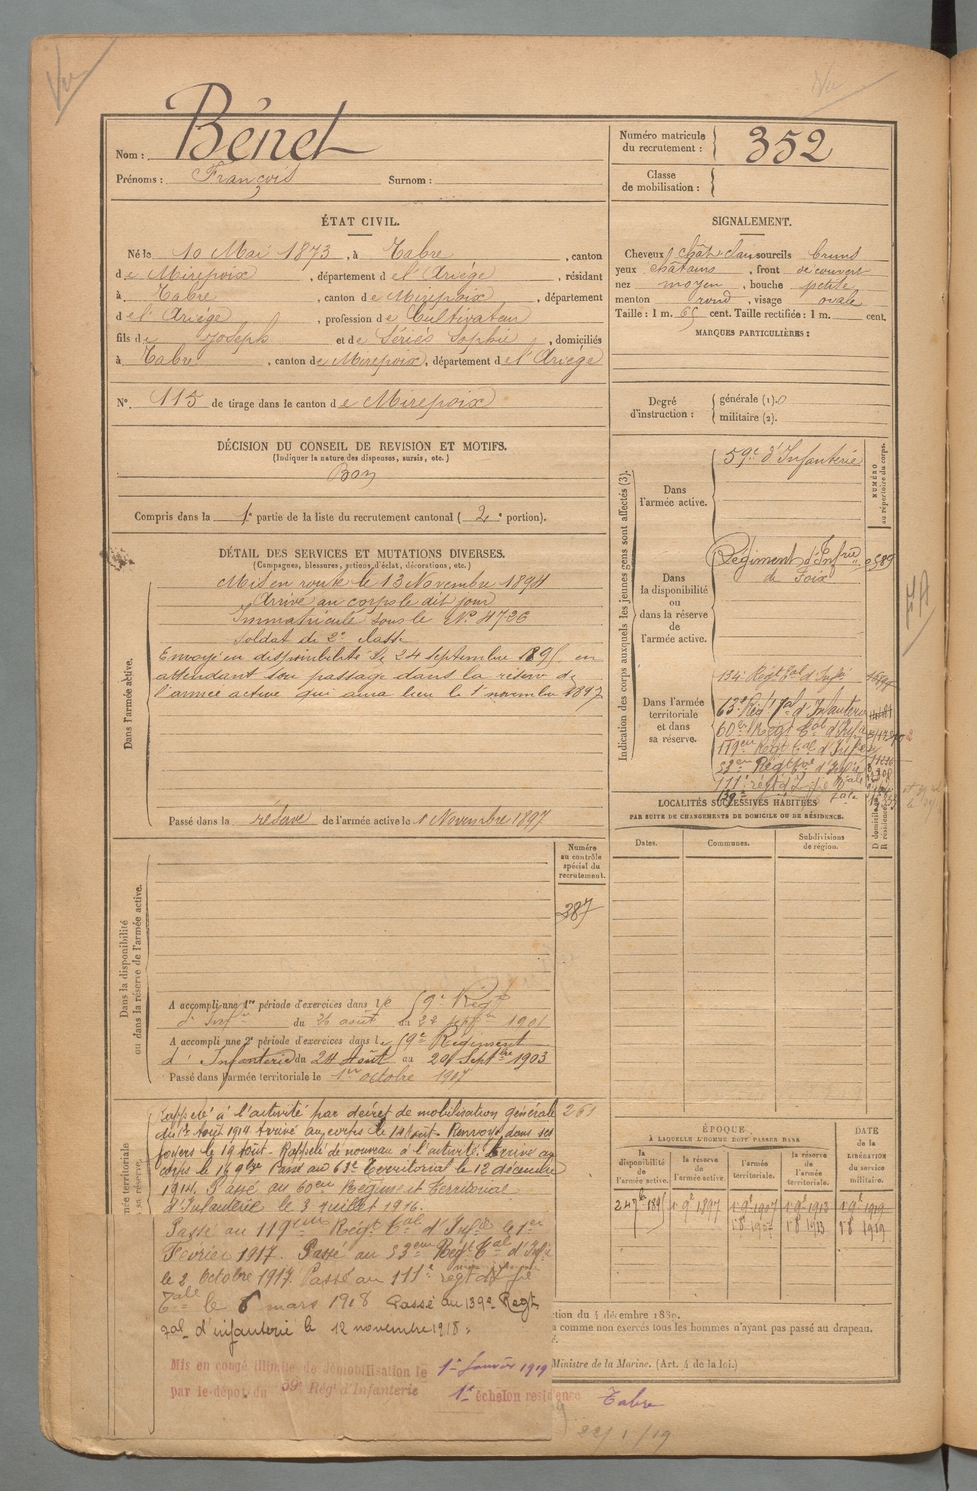 Vu
Vu
Nom : Bénet
Prénoms : François Surnom :
Numéro matricule du recrutement : 352
Classe de mobilisation :
ÉTAT CIVIL.
Né le 10 Mai 1873, à Tabre, canton
de Mirepoix, département de l'Ariège, résidant
à Tabre, canton de Mirepoix, département
de l'Ariège, profession de Cultivateur
fils de Joseph et de Sériés Sophie, domiciliés
à Tabre, canton de Mirepoix, département de l'Ariège
N° 115 de tirage dans le canton de Mirepoix
DÉCISION DU CONSEIL DE REVISION ET MOTIFS.
(Indiquer la nature des dispenses, sursis, etc.)
Bon
Compris dans la 1e partie de la liste du recrutement cantonal (2e portion).
SIGNALEMENT.
Cheveux chât. clair sourcils bruns
yeux châtains, front découvert
nez moyen, bouche petite
menton rond, visage ovale
Taille : 1 m. 65 cent. Taille rectifiée : 1 m. cent.
MARQUES PARTICULIÈRES :
Degré d'instruction :
générale (1). 0
militaire (2).
DÉTAIL DES SERVICES ET MUTATIONS DIVERSES.
(Campagnes, blessures, actions d'éclat, décorations, etc.)
Dans l'armée active.
Mis en route le 13 Novembre 1894
Arrivé au corps le dit jour
Immatriculé sous le N° 4726
Soldat de 2e classe
Envoyé en disponibilité le 24 septembre 1895 en
attendant son passage dans la réserve de
l'armée active qui aura lieu le 1er novembre 1897
Passé dans la réserve de l'armée active le 1 Novembre 1897
Indication des corps auxquels les jeunes gens sont affectés (3).
NUMÉRO au répertoire du corps.
Dans l'armée active.
59e d'Infanterie
Dans la disponibilité ou dans la réserve de l'armée active.
Régiment d'Infrie
de Foix
Dans l'armée territoriale et dans sa réserve.
134e Régt tal d'Infie
63e Régt Tal d'Infanterie
60e Régt tal d'Infie
119em Régt tal d'Infie
53em Régt tal d'Infie
111e régt d'Infie tale
139e
LOCALITÉS SUCCESSIVES HABITÉES
PAR SUITE DE CHANGEMENTS DE DOMICILE OU DE RÉSIDENCE.
Dates. Communes. Subdivisions de région.
D domicile R résidence
Dans la disponibilité ou dans la réserve de l'armée active.
Numéro au contrôle spécial du recrutement.
387
A accompli une 1re période d'exercices dans le 59e Régt
d'Infie du 26 août au 22 septbre 1901
A accompli une 2e période d'exercices dans le 59e Régiment
d'Infanterie du 24 Août au 20 Septbre 1903
Passé dans l'armée territoriale le 1er octobre 1907
Rappelé à l'activité par décret de mobilisation générale
du 1er Août 1914 Arrivé au corps le 14 août. Renvoyé dans ses
foyers le 19 Août. Rappelé de nouveau à l'activité. Arrivé au
corps le 16 9bre Passé au 63e Territorial le 12 décembre
1914. Passé au 60em Régiment Territorial
d'Infanterie le 3 juillet 1916.
Passé au 119em Régt tal d'Infie le 1er
Février 1917. Passé au 53em Régt tal d'Infie
le 2 Octobre 1917 Passé au 111e régt d'Infie
tale le 6 mars 1918 Passé au 139e Regt
tal d'infanterie le 12 novembre 1918.
261
Mis en congé illimité de démobilisation le 1er Janvier 1919
par le dépôt du 59e Régt d'Infanterie 1er échelon residence Tabre
22/1/19
ÉPOQUE
À LAQUELLE L'HOMME DOIT PASSER DANS
DATE de la LIBÉRATION du service militaire.
la disponibilité de l'armée active. la réserve de l'armée active. l'armée territoriale. la réserve de l'armée territoriale.
24 7bre 1895 1er 9e 1897 1er 9e 1907 1er 9e 1913 1er 9e 1919
1er 8e 1907 1er 8e 1913 1er 8e 1919
ction du 4 décembre 1889.
comme non exercés tous les hommes n'ayant pas passé au drapeau.
Ministre de la Marine. (Art. 4 de la loi.)